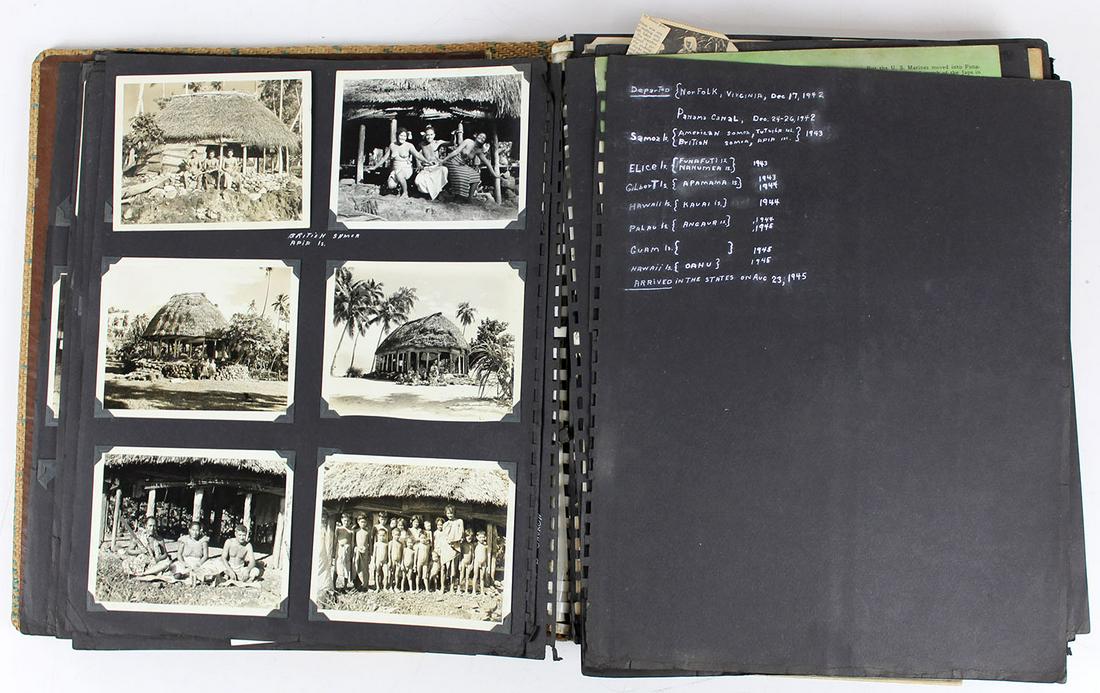 BRITISH SAMOA
APIA Is.
But the U. S. Marines moved into Funa-
of the Japs in
Departed {NORFOLK, VIRGINIA, Dec 17, 1942
Panama Canal, Dec. 24-26, 1942
Samoa Is {American Samoa, Tutuila Is. } 1943
British Samoa, Apia Is.
ELICE Is {FUNAFUTI Is } 1943
NANUMEA Is.
GILBERT Is { APAMAMA Is.} 1943
1944
HAWAII Is. { KAUAI Is.} 1944
PALAU Is. { ANGAUR Is.} 1944
1945
GUAM Is. { } 1945
HAWAII Is. { OAHU } 1945
ARRIVED IN THE STATES ON AUG 23, 1945